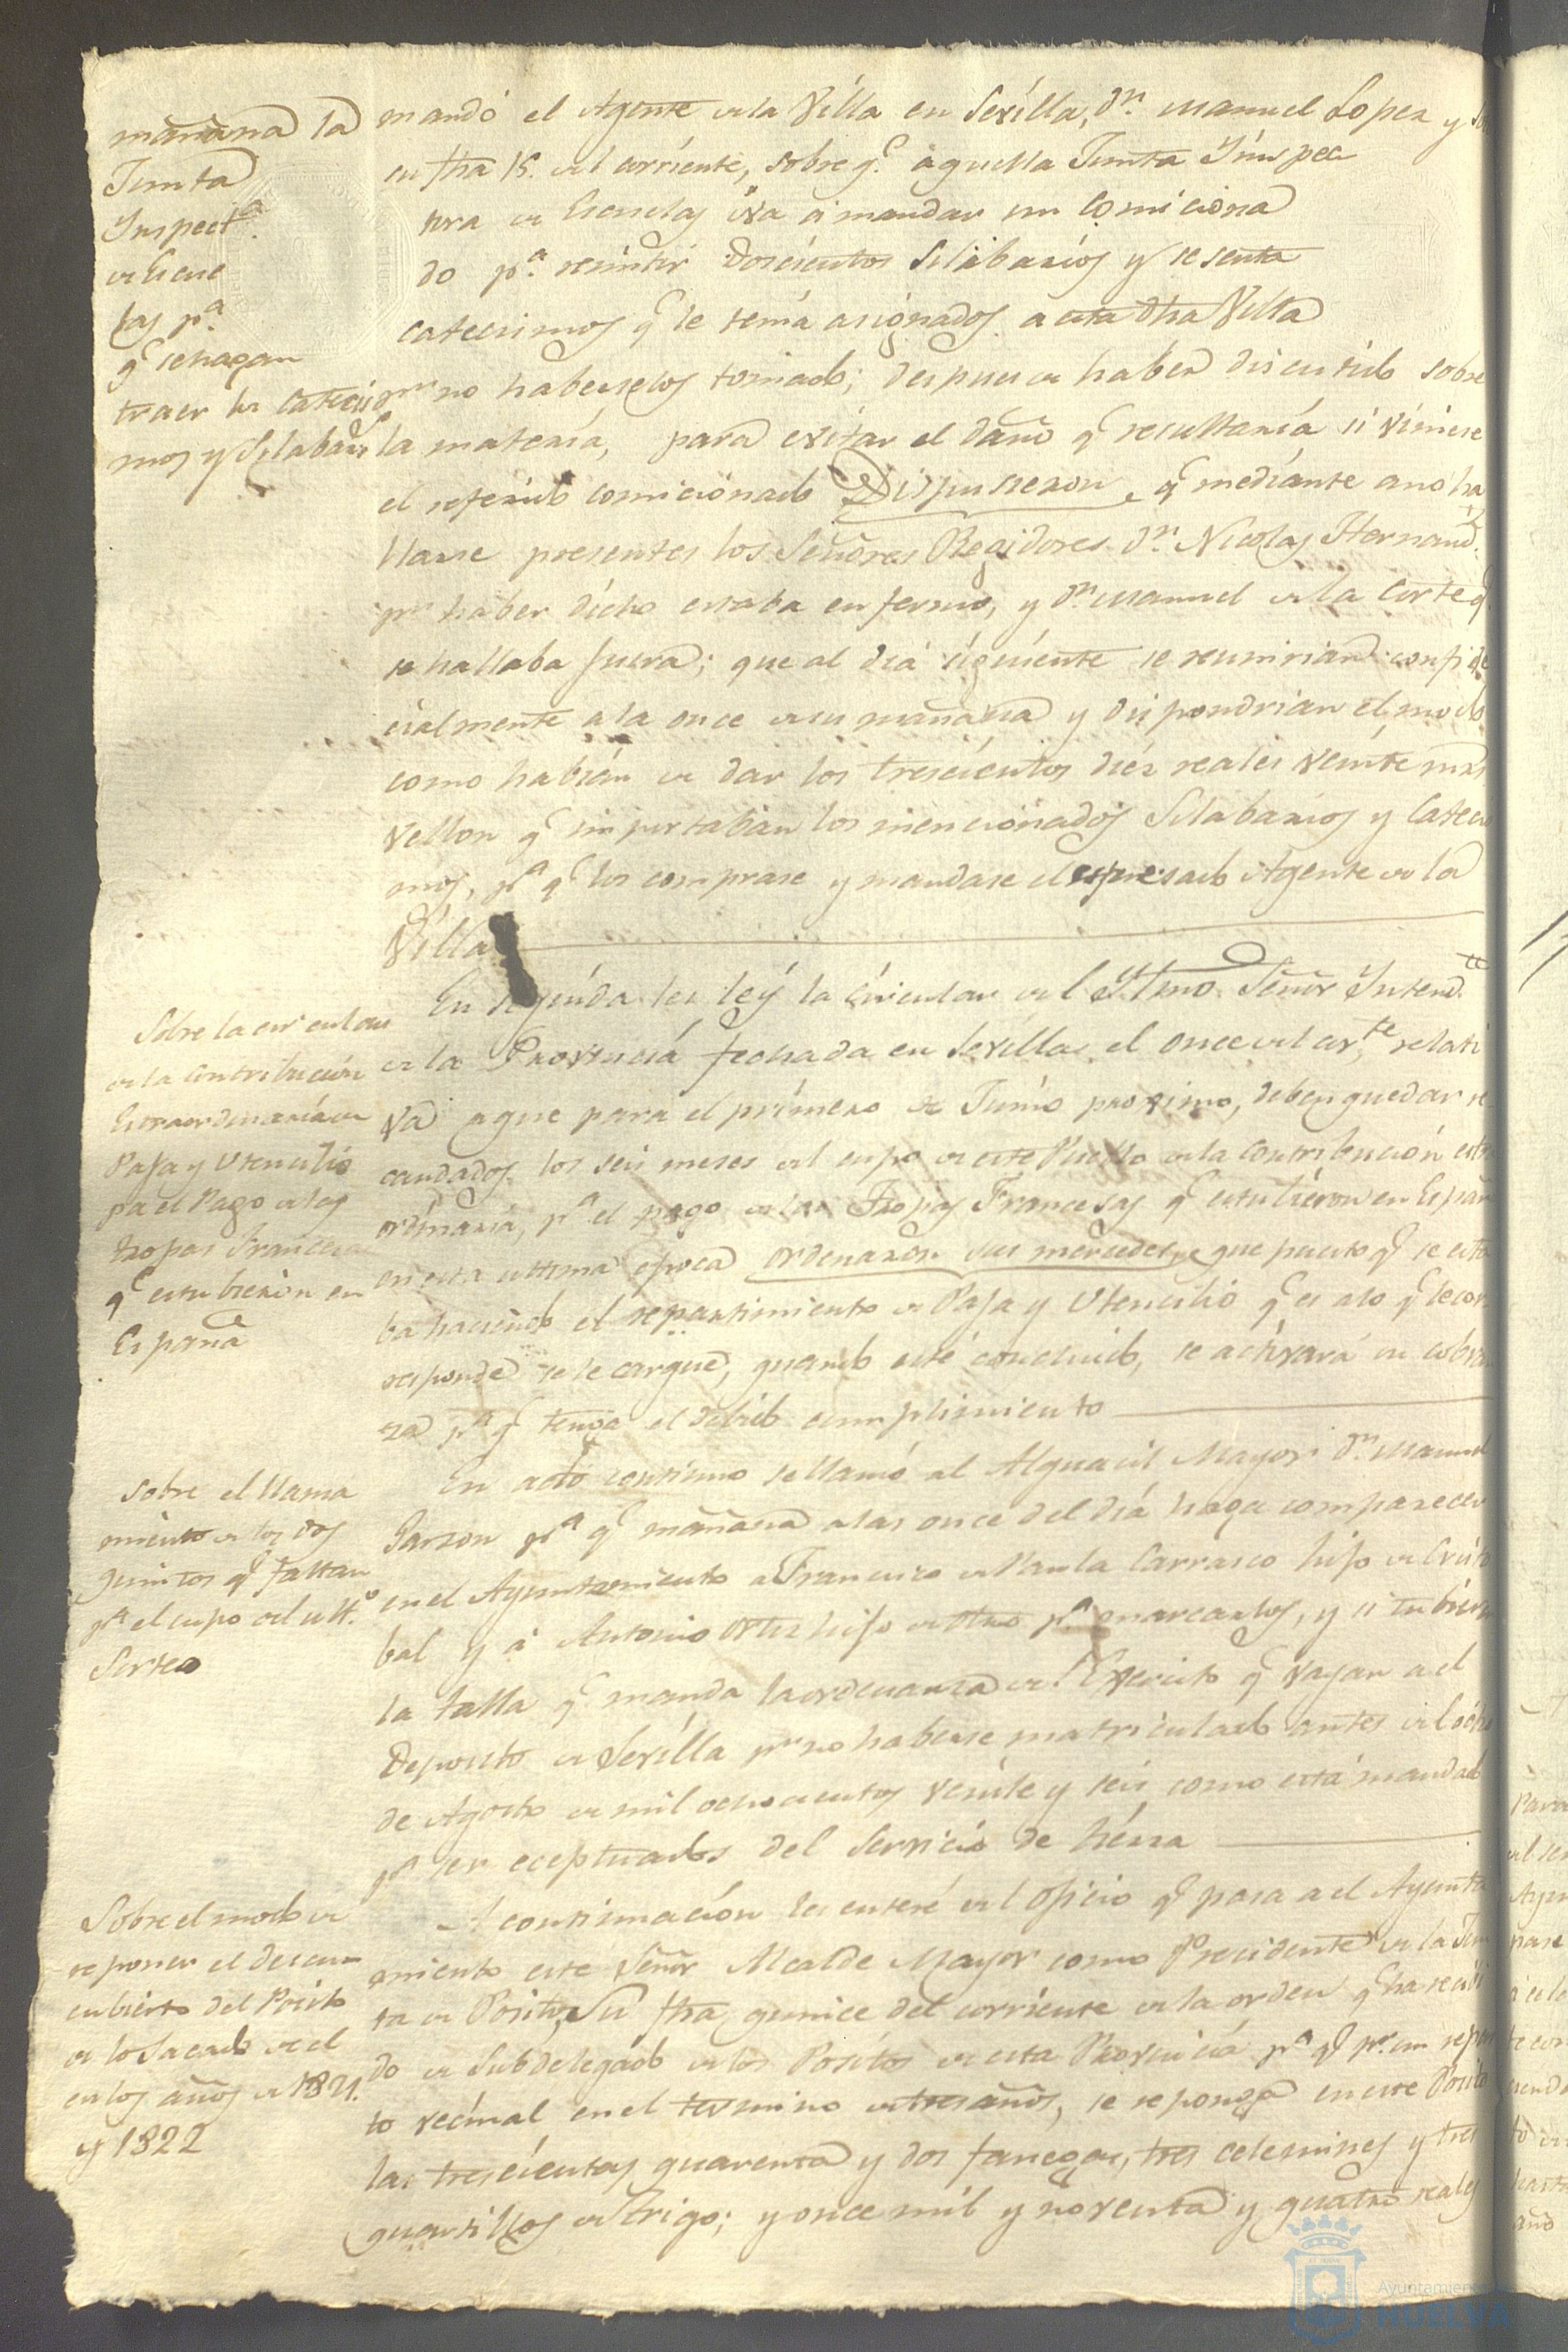 mañana la
Junta
Inspect.ª
de Escue
las p.ª
q.e se hagan
traer los Catecis
mos y Silabarios
mandó el Agente de la Villa en Sevilla, D.n Manuel Lopez y
en fha 15. del corriente, sobre q.e aquella Junta Ynspec
tora de Escuelas iva á mandar un Comiciona
do p.ª remitir Doscientos Silabarios y sesenta
catecismos q.e le tenía asignados a esta dha Villa
p.r no haberselos tomado; despues de haber discutido sobre
la materia, para evitar el daño q.e resultaría si viniese
el referido comicionado Dispusieron, q.e mediante a no ha
llarse presentes los Señores Regidores D.n Nicolas Hernand.
p.r haber dicho estaba enfermo, y D.n Manuel de la Corte q.e
se hallaba fuera; que al día siguiente se reunirian confide
cialmente a la once de su mañana y dispondrian el modo
como habían de dar los trescientos diez reales veinte mrs
vellon q.e importaban los mencionados Silabarios y Catecis
mos, p.ª q.e los comprase y mandase el espresado Agente de la
Villa
Sobre la circular
de la Contribución
Estraordinaria de
Paja y Utencilio
pa el Pago de las
tropas Francesas
q.e estubieron en
España
En seguida les leý la circular del Yltmo. Señor Yntend.te
de la Provincia fechada en Sevilla el once del cor.te relati
va a que para el primero de Junio proximo, deben quedar re
caudados los seis meses del cupo de este Pueblo de la Contribución estra
ordinaria, p.ª el pago de las Tropas Francesas q.e estubieron en España
en esta ultima epoca ordenaron sus mercedes, que puesto q.e se esta
ba haciendo el repartimiento de Paja y Utencilio q.e es a lo q.e le cor
responde se le cargue, quando esté concluido, se activará su cobran
za p.ª q.e tenga el debido cumplimiento
sobre el llama
miento de los dos
Quintos q.e faltan
p.ª el cupo del ult.º
Sorteo
En acto continuo se llamó al Alguacil Mayor D.n Manuel
Garzon p.ª q.e mañana a las once del día haga comparecer
en el Ayuntamiento a Francisco de Paula Carrasco hijo de Cristo
bal y á Antonio Ortiz hijo de otro p.ª marcarlos, y si tubieren
la talla q.e manda la ordenanza del Exercito q.e vayan a el
Deposito de Sevilla p.r no haberse matriculado antes del ócho
de Agosto de mil ochocientos veinte y seis como está mandado
p.ª ser eceptuados del Servicio de tierra
Sobre el modo de
reponer el descu
cubierto del Posito
de lo Sacado de el
en los años de 1821.
y 1822
A continuación les enteré del oficio q.e pasa a el Ayunta
miento este Señor Alcalde Mayor como Presidente de la Jun
ta de Positos, Su fha quince del corriente de la orden q.e ha recibi
do de Subdelegado de los Positos de esta Provincia p.ª q.e p.r un repar
to vecinal en el termino de tres años, se reponga en este Posito
las trescientas quarenta y dos fanegas, tres celemines y tres
quartillos de Trigo; y once mil y noventa y quatro reales
Ayuntamiento
HUELVA